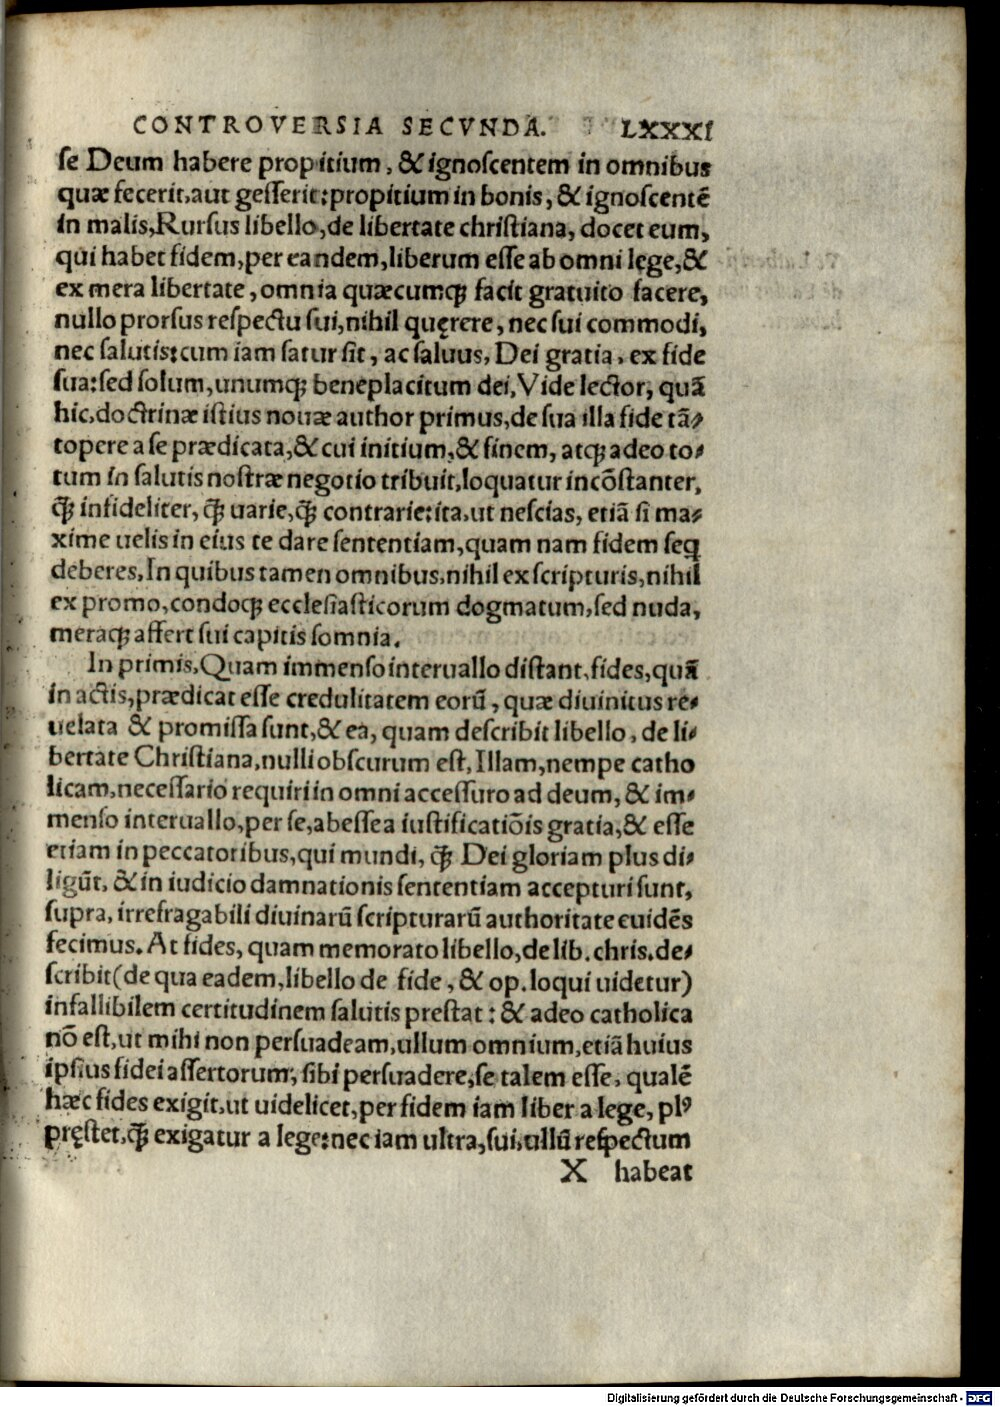 CONTROVERSIA SECVNDA. LXXXI
se Deum habere propitium, & ignoscentem in omnibus
quæ fecerit, aut gesserit: propitium in bonis, & ignoscentē
in malis, Rursus libello, de libertate christiana, docet eum,
qui habet fidem, per eandem, liberum esse ab omni lege, &
ex mera libertate, omnia quæcumqꝫ facit gratuito facere,
nullo prorsus respectu sui, nihil quęrere, nec sui commodi,
nec salutis: cum iam satur sit, ac saluus, Dei gratia, ex fide
sua: sed solum, unumqꝫ beneplacitum dei, Vide lector, quā
hic, doctrinæ istius nouæ author primus, de sua illa fide tā-
topere a se prædicata, & cui initium, & finem, atqꝫ adeo to-
tum in salutis nostræ negotio tribuit, loquatur incōstanter,
q̄ꝫ infideliter, q̄ꝫ uarie, q̄ꝫ contrarie: ita, ut nescias, etiā si ma-
xime uelis in eius te dare sententiam, quam nam fidem seq
deberes, In quibus tamen omnibus, nihil ex scripturis, nihil
ex promo, condoqꝫ ecclesiasticorum dogmatum, sed nuda,
meraqꝫ affert sui capitis somnia.
In primis, Quam immenso interuallo distant, fides, quā
in actis, prædicat esse credulitatem eorū, quæ diuinitus re-
uelata & promissa sunt, & ea, quam describit libello, de li-
bertate Christiana, nulli obscurum est, Illam, nempe catho
licam, necessario requiri in omni accessuro ad deum, & im-
menso interuallo, per se, abesse a iustificatiōis gratia, & esse
etiam in peccatoribus, qui mundi, q̄ꝫ Dei gloriam plus di-
ligūt, & in iudicio damnationis sententiam accepturi sunt,
supra, irrefragabili diuinarū scripturarū authoritate euidēs
fecimus. At fides, quam memorato libello, de lib. chris. de-
scribit (de qua eadem, libello de fide, & op. loqui uidetur)
infallibilem certitudinem salutis prestat: & adeo catholica
nō est, ut mihi non persuadeam, ullum omnium, etiā huius
ipsius fidei assertorum, sibi persuadere, se talem esse, qualē
hæc fides exigit, ut uidelicet, per fidem iam liber a lege, plꝰ
pręstet, q̄ꝫ exigatur a lege: nec iam ultra, sui, ullū respectum
X habeat
Digitalisierung gefördert durch die Deutsche Forschungsgemeinschaft - DFG